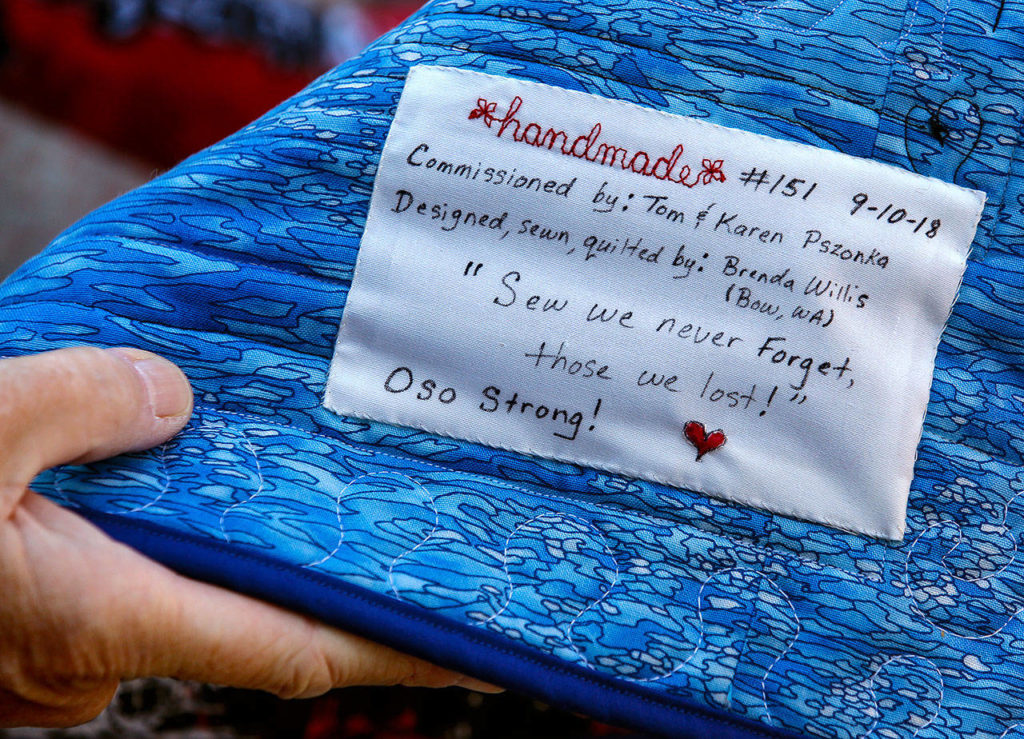 handmade #151 9-10-18
Commissioned by: Tom & Karen Pszonka
Designed, sewn, quilted by: Brenda Willis
(Bow, WA)
"Sew we never Forget,
those we lost!"
Oso Strong!